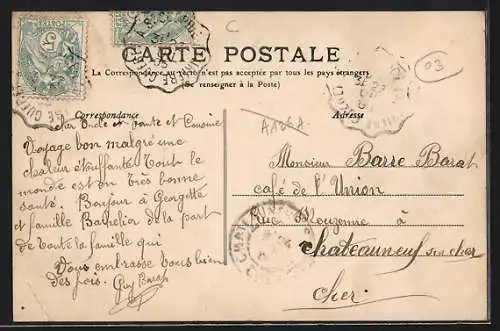 C
CARTE POSTALE
La Correspondance au verso n'est pas acceptée par tous les pays étrangers
(Se renseigner à la Poste)
03
Correspondance
Adresse
Oncle et tante et Cousine
Voyage bon malgré une
chaleur étouffante tout le
monde est en très bonne
santé. Bonjour à Georgette
et famille de la part
de toute la famille qui
Vous embrasse tous bien
des fois. Guy Barat
Monsieur Barre Barat
café de l'Union
à
Chateauneuf sur cher
Cher